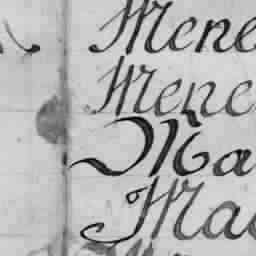 Mene
Menc
Ma
Mac